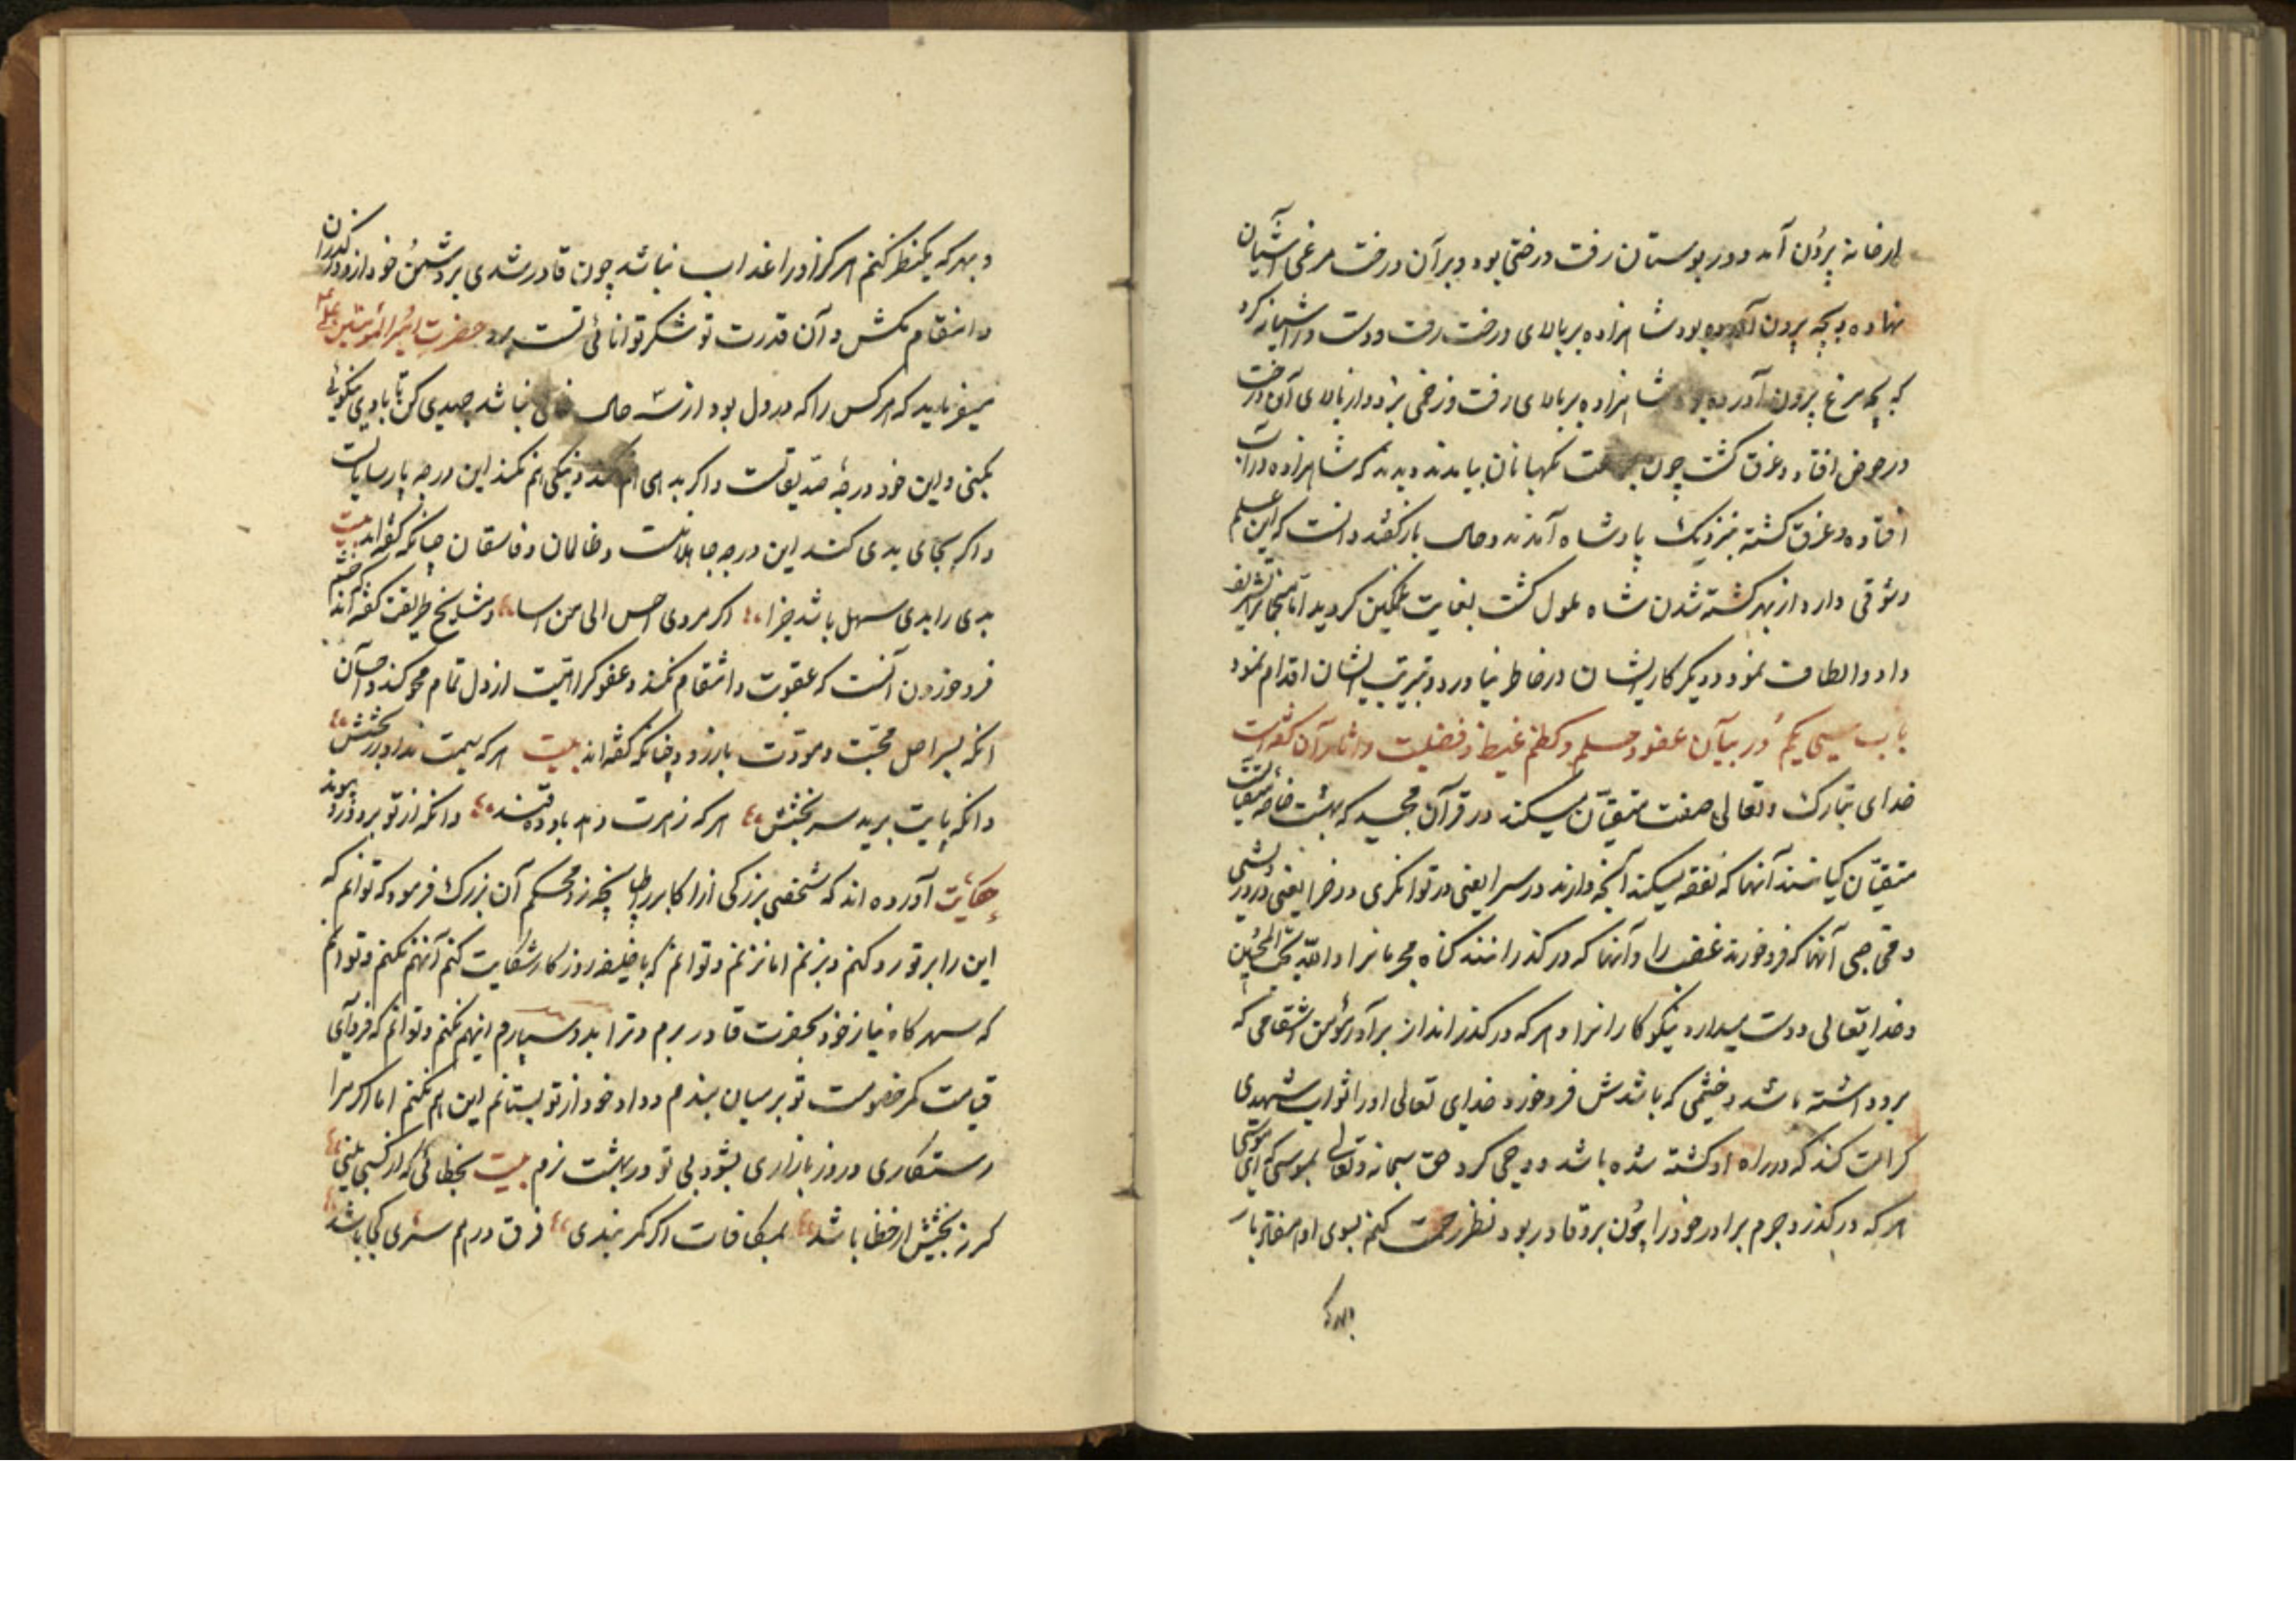 از خانه برون آمد و در بوستان رفت درختی بود و بر آن درخت مرغی آشیان
نهاده و بچه برون آورده بود شاهزاده بر بالای درخت رفت و دست در آشیانه کرد
که بچه مرغ برون آورده بود شاهزاده بر بالای رفت و زخمی بزد و از بالای آن درخت
در حوض افتاد و غرق گشت چون نگهبانان بیامدند دیدند که شاهزاده در آب
افتاده و غرق گشته بنزدیک پادشاه آمدند و حال باز گفتند دانست که این علم
وثوقی دارد از بهر کشته شدن شاه ملول گشت بغایت غمگین گردید اما منجمانرا تشریف
داد و الطاف نمود و دیگر کار ایشان در خاطر نیاورد و بتربیت ایشان اقدام نمود
باب سی یکم در بیان عفو و حلم و کظم غیظ و فضیلت و آثار آن گفته است
خدای تبارک و تعالی صفت متقیان میکند در قرآن مجید که بهشت خاصه متقیانست
متقیان کیانند آنها که نفقه میکنند آنچه دارند در سرا یعنی در توانگری و در ضرا یعنی در درویشی
و محتاجی آنها که فرو خورند غضب را و آنها که در گذرانند گناه مجرمانرا و الله یحب المحسنین
و خدایتعالی دوست میدارد نیکوکارانرا و هر که در گذراند از برادر مؤمن انتقامی که
برو داشته باشد و خشمی که باشدش فرو خورد خدای تعالی او را ثواب شهیدی
کرامت کند که در راه او کشته شده باشد و وحی کرد حق سبحانه و تعالی بموسی که ای موسی
هر که در گذرد جرم برادر خود را چون برو قادر بود نظر رحمت کنم بسوی او هفتاد بار
و بهر که یکنظر کنم هرگز او را عذاب نباشد چون قادر شدی بر دشمن خود ازو در گذران
و انتقام مکش و آن قدرت تو شکر توانائی تست حضرت امیر المؤمنین علی
میفرماید که هر کس را که در دل بود از سه حال خالی نباشد جهدی کن تا با وی نیکوئی
بکنی و این خود درجهٔ صدیقانست و اگر بدی هم نکند و نیکی هم نکند این درجه پارسایانست
و اگر بجای بدی کند این درجه جاهلانست و ظالمان و فاسقان چنانکه گفته اند بیت
بدی را بدی سهل باشد جزا اگر مردی احسن الی من اسا و مشایخ طریقت گفته اند که خشم
فرو خوردن آنست که عقوبت و انتقام نکند و عفو کرا هیت از دل تمام محو کند و احسان
انکه بسر اصل محبت و مودت بازرود چنانکه گفته اند بیت هر که سیمت نداد زر بخشش
وانکه پایت برید سر بخشش هر که زهرت دهد باو ده قند وانکه از تو برد درو پیوند
حکایت آورده اند که شخصی بزرگی از اکابر را طپانچه زد محکم آن بزرگ فرمود که توانم که
این را بر تو رد کنم و بزنم اما نزنم و توانم که با خلیفه روزگار شکایت کنم آنهم نکنم و توانم
که سهرگاه نیاز خود بحضرت قادر برم و ترا بدو سپارم اینهم نکنم و توانم که فردای
قیامت کمر خصومت تو بر میان بندم و داد خود از تو بستانم این هم نکنم اما اگر مرا
رستگاری در روز بازاری بشود بی تو در بهشت نرم بیت بخطائی که از کسی بینی
گر نه بخشش از خطا باشد بمکافات اگر کمر بندی فرق در هم سری کجا باشد